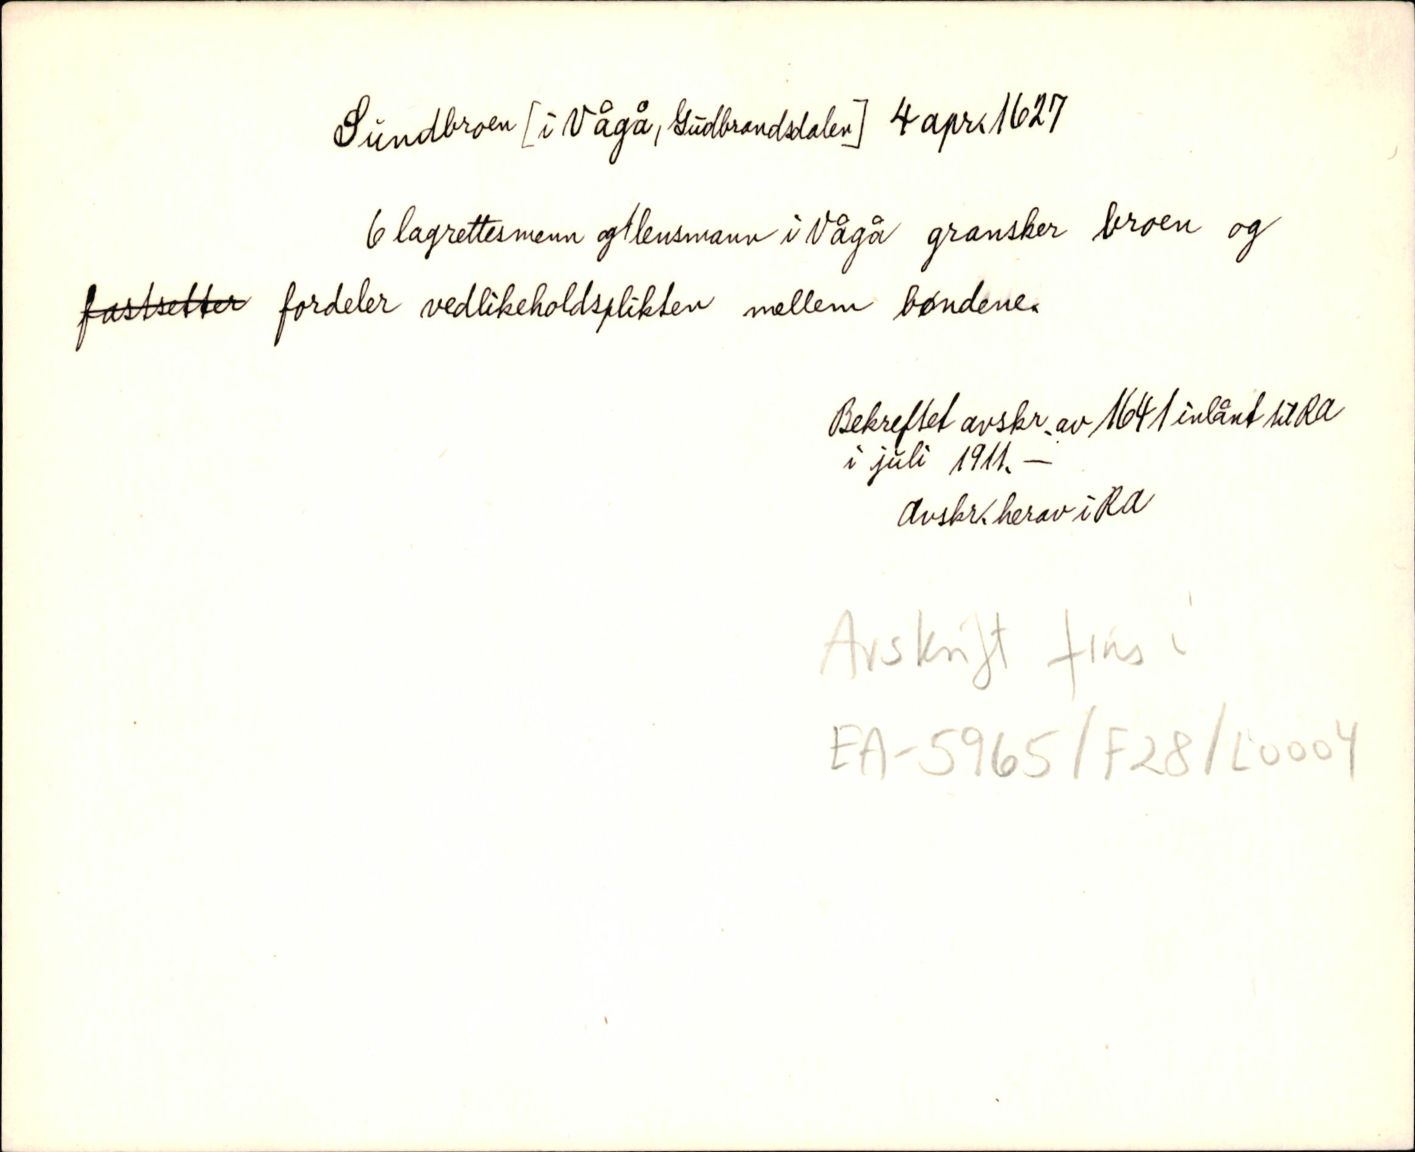 Sundbroen [i Vågå, Gudbrandsdalen] 4 apr. 1627
6 lagrettesmenn og lensmann i Vågå gransker broen og
fastsetter fordeler vedlikeholdsplikten mellem bøndene.
Bekreftet avskr. av 1641 inlånt til RA
i juli 1911. —
Avskr. herav i RA
Avskrift fins i
EA-5965/F28/L0004